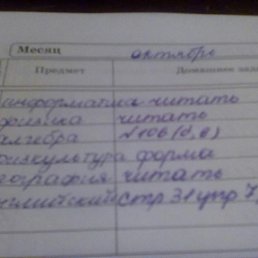 Месяц октябрь
Предмет Домашнее зада
информатика читать
физика читать
алгебра №106(d,в)
физкультура форма
география читать
английский стр 31 упр 7,